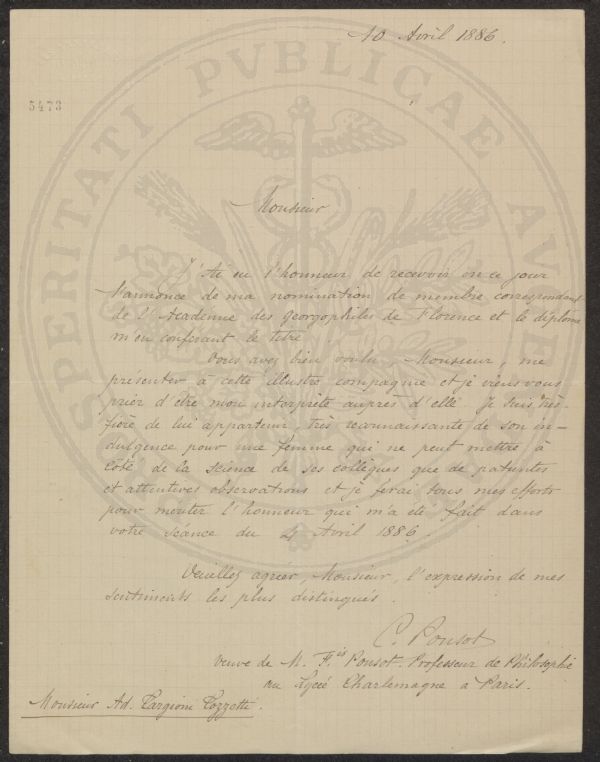 10 Avril 1886.
5473
Monsieur
J'Ai eu l'honneur de recevoir en ce jour
l'annonce de ma nomination de membre correspondant
de l'Academie des Georgophiles de Florence et le diplome
m'en conferant le titre.
Vous avez bien voulu, Monsieur, me
présenter à cette illustre compagnie et je viens vous
prier d'etre mon interprète auprès d'elle. Je suis très-
fière de lui appartenir, très reconnaissante de son in-
dulgence pour une femme qui ne peut mettre à
côté de la science de ses collègues que de patientes
et attentives observations et je ferai tous mes efforts
pour meriter l'honneur qui m'a été fait dans
votre séance du 4 Avril 1886.
Veuillez agréer, Monsieur, l'expression de mes
sentiments les plus distingués.
C. Ponsot
Veuve de M. F.is Ponsot. Professeur de Philosophie
au Lycée Charlemagne à Paris.
Monsieur Ad. Targioni Tozzetti.
PROSPERITATI PVBLICAE AVGENDAE